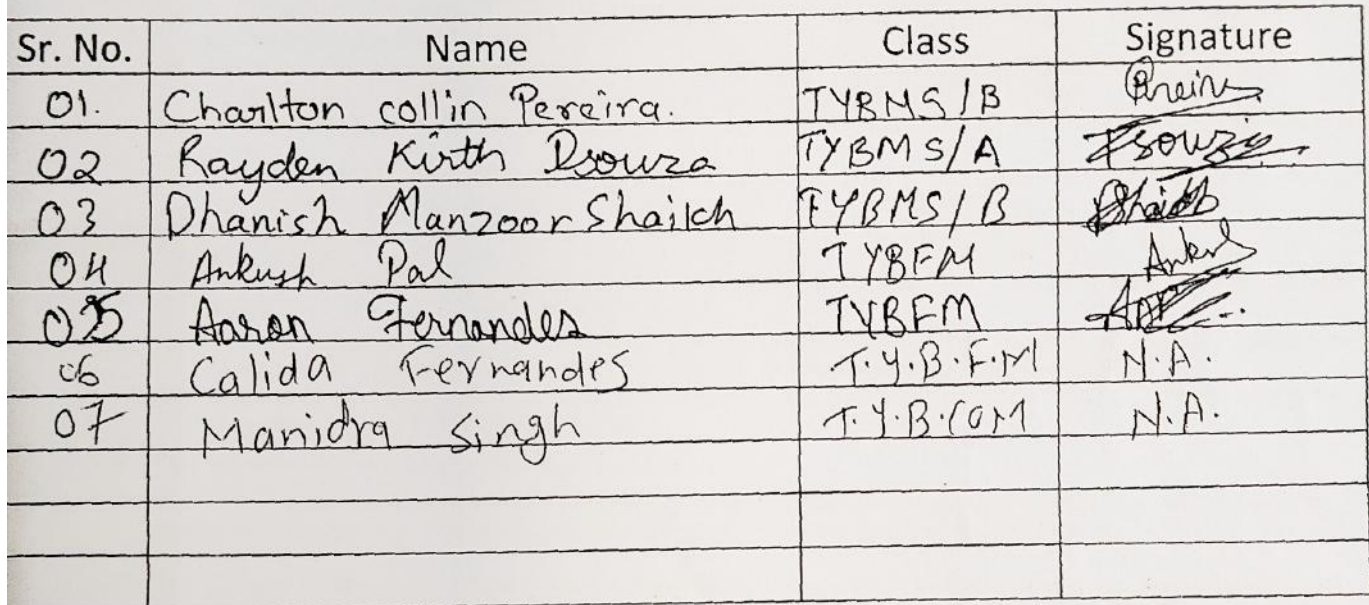 Sr. No. Name Class Signature
01. Charlton collin Pereira. TYBMS/B Pereira
02 Rayden Kirth Dsouza TYBMS/A Dsouza
03 Dhanish Manzoor Shaikh TYBMS/B Shaikh
04 Ankush Pal TYBFM Ankush
05 Aaron Fernandes TYBFM
06 Calida Fernandes T.Y.B.F.M N.A.
07 Manidra Singh T.Y.B.COM N.A.